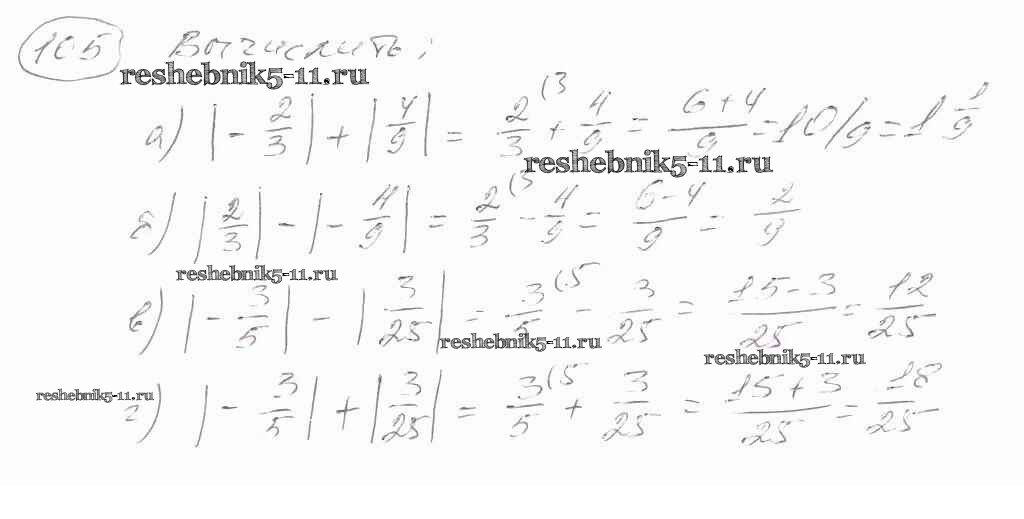 105 Вычислить:
reshebnik5-11.ru
а) |-2/3| + |4/9| = 2/3 (3 + 4/9 = 6+4/9 = 10/9 = 1 1/9
reshebnik5-11.ru
б) |2/3| - |-4/9| = 2/3 (3 - 4/9 = 6-4/9 = 2/9
reshebnik5-11.ru
в) |-3/5| - |3/25| = 3/5 (5 - 3/25 = 15-3/25 = 12/25
reshebnik5-11.ru
reshebnik5-11.ru
reshebnik5-11.ru
г) |-3/5| + |3/25| = 3/5 (5 + 3/25 = 15+3/25 = 18/25